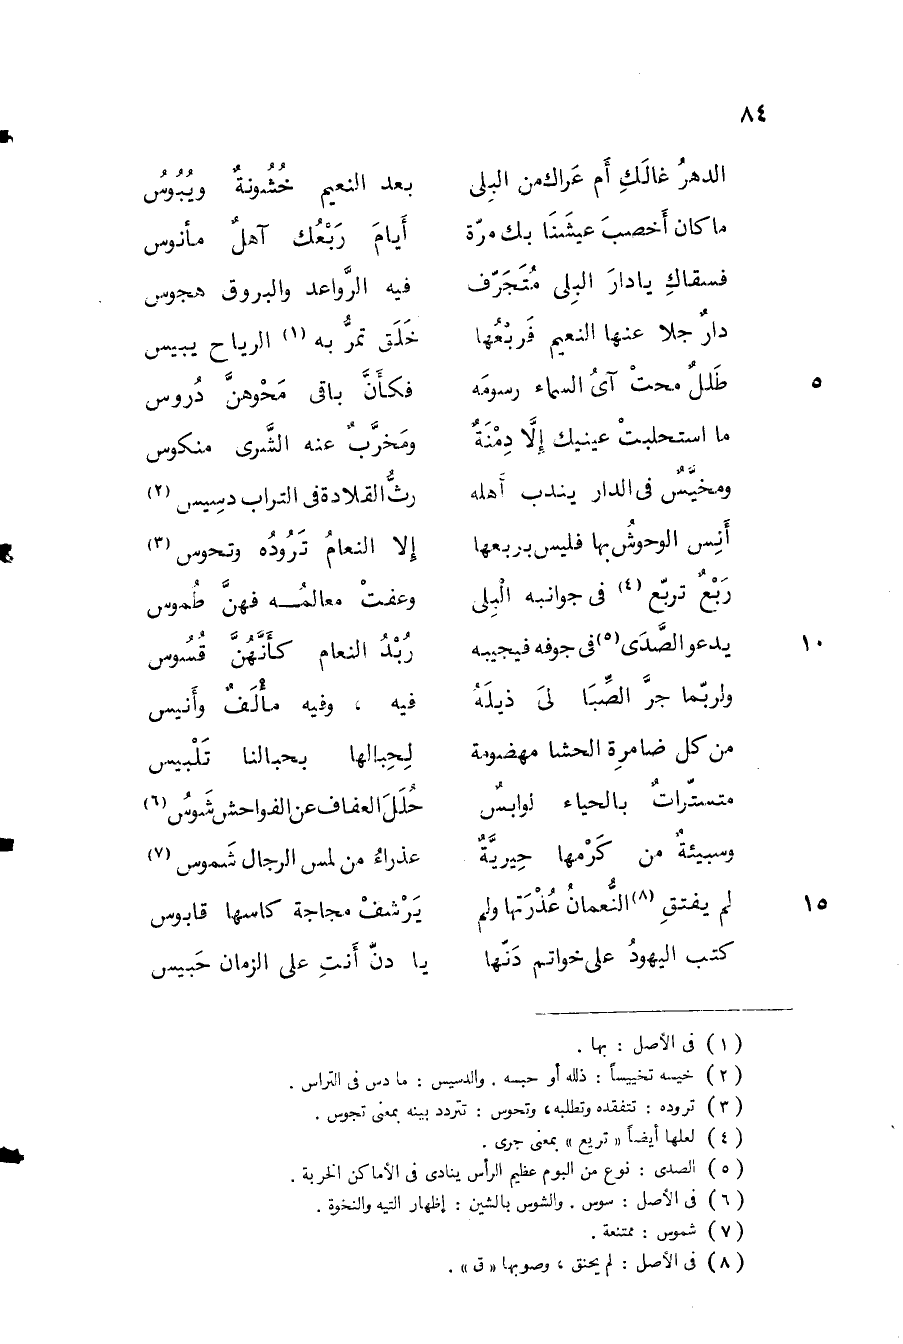 ٨٤
الدهرُ غالَكِ أم عَراك من البِلى بعد النعيم خُشُونةٌ ويُبُوسُ
ما كان أخصبَ عيشَنَا بك مرّة أيامَ رَبْعُك آهلٌ مأنوس
فسقاكِ يادارَ البِلى مُتَجَرّف فيه الرَّواعد والبروق هجوس
دارٌ جلا عنها النعيم فَربْعُها خَلَق تمرُّ به (١) الرياح يبيس
٥ طَللٌ محتْ آىُ السماء رسومَه فكأنَّ باقى مَحْوهنَّ دُروس
ما استحلبتْ عينيك إلَّا دِمْنَةٌ ومُخرَّبٌ عنه الشَّرى منكوس
ومخيَّسٌ فى الدار يندب أهله رثُّ القلادة فى التراب دسيس (٢)
أنِس الوحوشُ بها فليس بربعها إلا النعامُ تَرُودُه وتحوس (٣)
رَبْعٌ تربّع (٤) فى جوانبه الْبِلى وعفتْ معالمُـــه فهنَّ طُموس
١٠ يدعو الصَّدَى (٥) فى جوفه فيجيبه رُبْدُ النعام كأنَّهُنَّ قُسُوس
ولربّما جرَّ الصِّبَا لىَ ذيلَهُ فيه ، وفيه مألَفٌ وأنيس
من كل ضامرةِ الحشا مهضومة لِحِبالها بحبالنا تَلْبيس
متستّراتٌ بالحياء لوابسٌ حُلَلَ العفاف عن الفواحش شُوسُ (٦)
وسبيئةٌ من كَرْمها حِيريَّةٌ عذراءُ من لمس الرجال شَموس (٧)
١٥ لم يفتقِ (٨) النُّعمانُ عُذْرَتها ولم يَرْشفْ مجاجة كاسها قابوس
كتب اليهودُ على خواتم دَنّها يا دنّ أنتِ على الزمان حَبيس
(١) فى الأصل : بها .
(٢) خيسه تخييساً : ذلله أو حبسه . والدسيس : ما دس فى التراس .
(٣) تروده : تتفقده وتطلبه ، وتحوس : تتردد بينه بمعنى تجوس .
(٤) لعلها أيضاً « تريع » بمعنى جرى .
(٥) الصدى : نوع من البوم عظيم الرأس ينادى فى الأماكن الخربة .
(٦) فى الأصل : سوس . والشوس بالشين : إظهار التيه والنخوة .
(٧) شموس : ممتنعة .
(٨) فى الأصل : لم يحنق ، وصوبها « ق » .